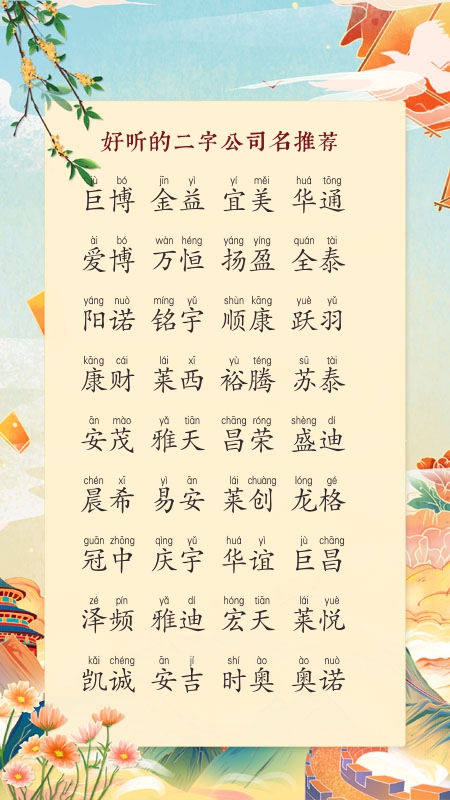 好听的二字公司名推荐
jù bó jīn yì yí měi huá tōng
巨博 金益 宜美 华通
ài bó wàn héng yáng yíng quán tài
爱博 万恒 扬盈 全泰
yáng nuò míng yǔ shùn kāng yuè yǔ
阳诺 铭宇 顺康 跃羽
kāng cái lái xī yù téng sū tài
康财 莱西 裕腾 苏泰
ān mào yǎ tiān chāng róng shèng dí
安茂 雅天 昌荣 盛迪
chén xī yì ān lái chuàng lóng gé
晨希 易安 莱创 龙格
guān zhōng qìng yǔ huá yì jù chāng
冠中 庆宇 华谊 巨昌
zé pín yǎ dí hóng tiān lái yuè
泽频 雅迪 宏天 莱悦
kǎi chéng ān jí shí ào ào nuò
凯诚 安吉 时奥 奥诺